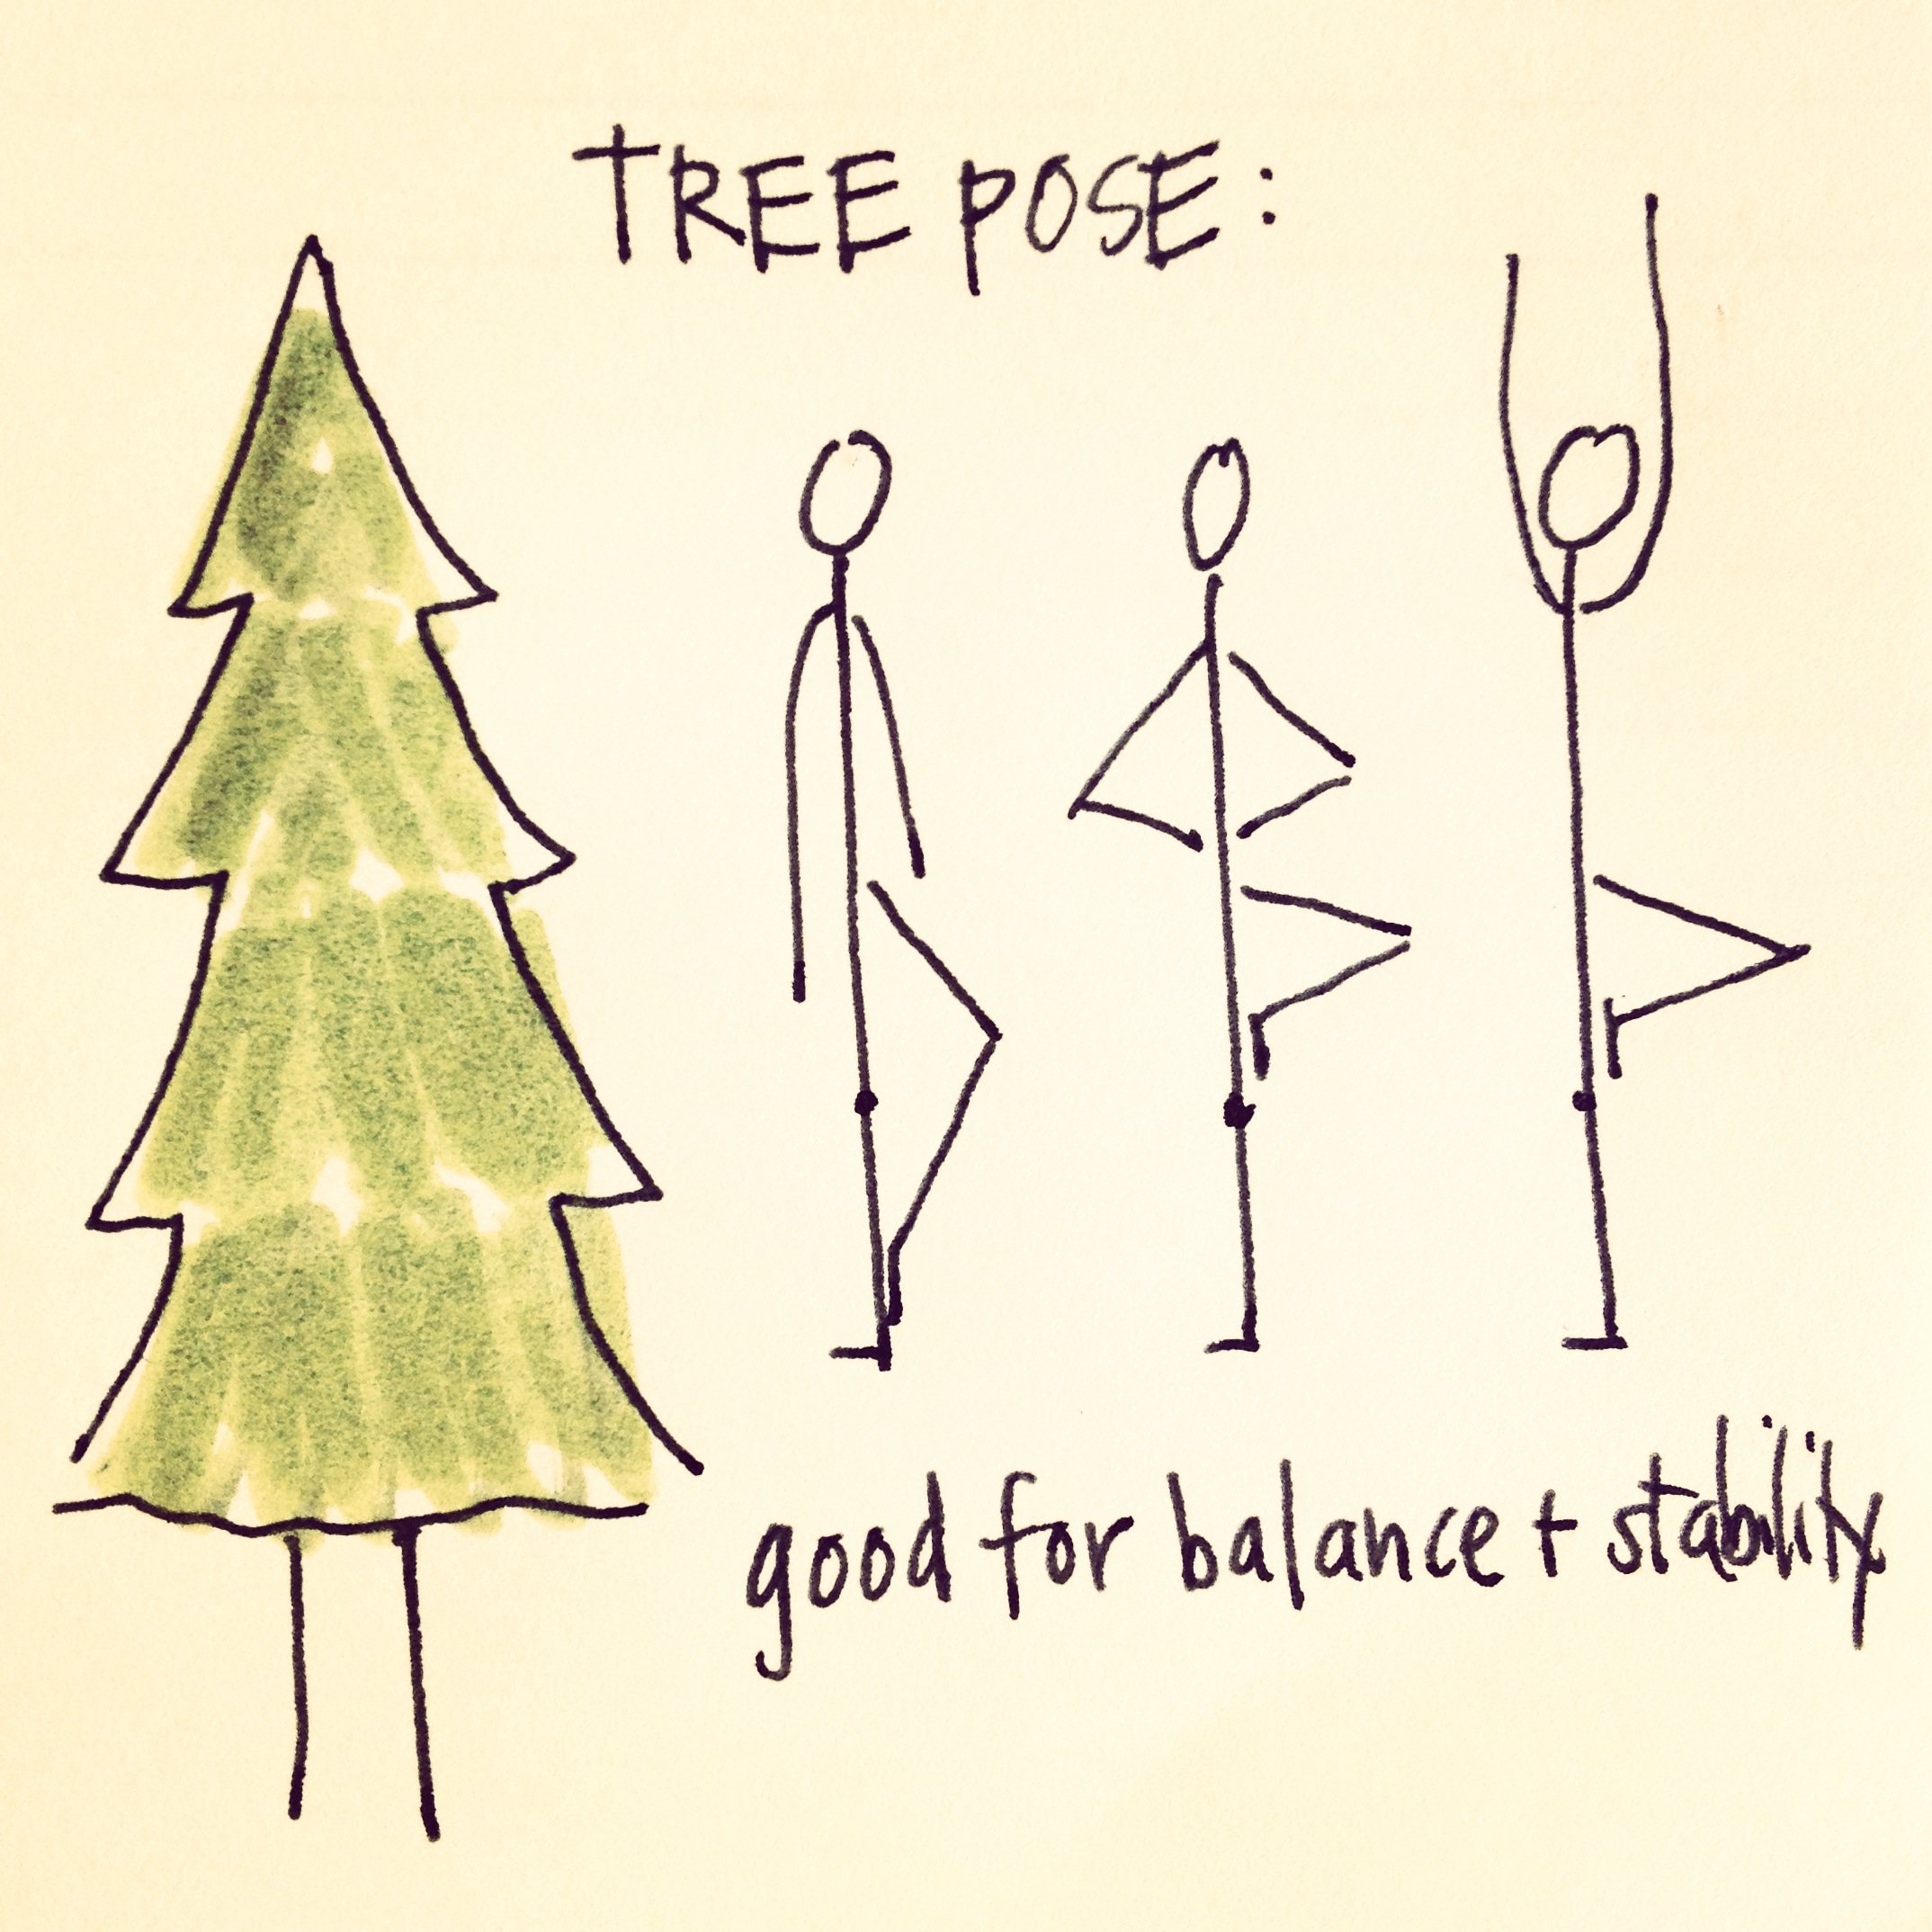 TREE POSE:
good for balance + stability